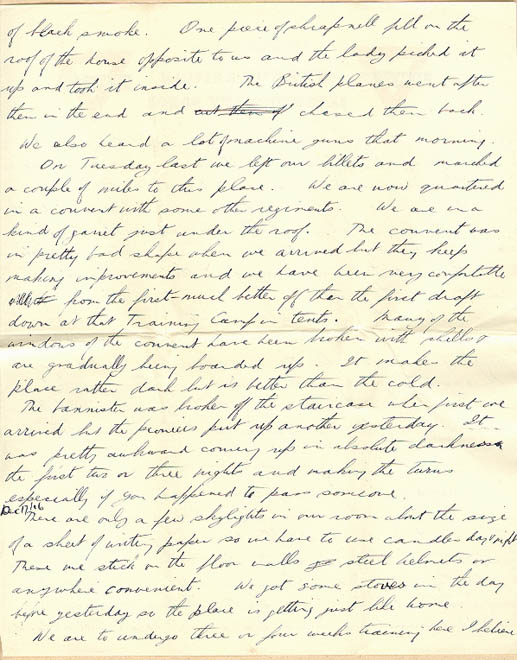 of black smoke. One piece of shrapnell fell on the
roof of the house opposite to us and the lady picked it
up and took it inside. The British planes went after
them in the end and cut them of chased them back.
We also heard a lot of machine guns that morning.
On Tuesday last we left our billets and marched
a couple of miles to this place. We are now quartered
in a convent with some other regiments. We are in a
kind of garret just under the roof. The convent was
in pretty bad shape when we arrived but they keep
making improvements and we have been very comfortable
from the first - much better off than the first draft
down at that Training Camp in tents. Many of the
windows of the convent have been broken with shells &
are gradually being boarded up. It makes the
place rather dark but is better than the cold.
The bannister was broken off the staircase when first we
arrived but the pioneers put up another yesterday. It
was pretty awkward coming up in absolute darkness
the first two or three nights and making the turns
especially if you happened to pass someone.
There are only a few skylights in our room about the size
of a sheet of writing paper so we have to use candles day & night
These we stick on the floor walls steel helmets or
anywhere convenient. We got some stoves in the day
before yesterday so the place is getting just like home.
We are to undergo three or four weeks training here I believe